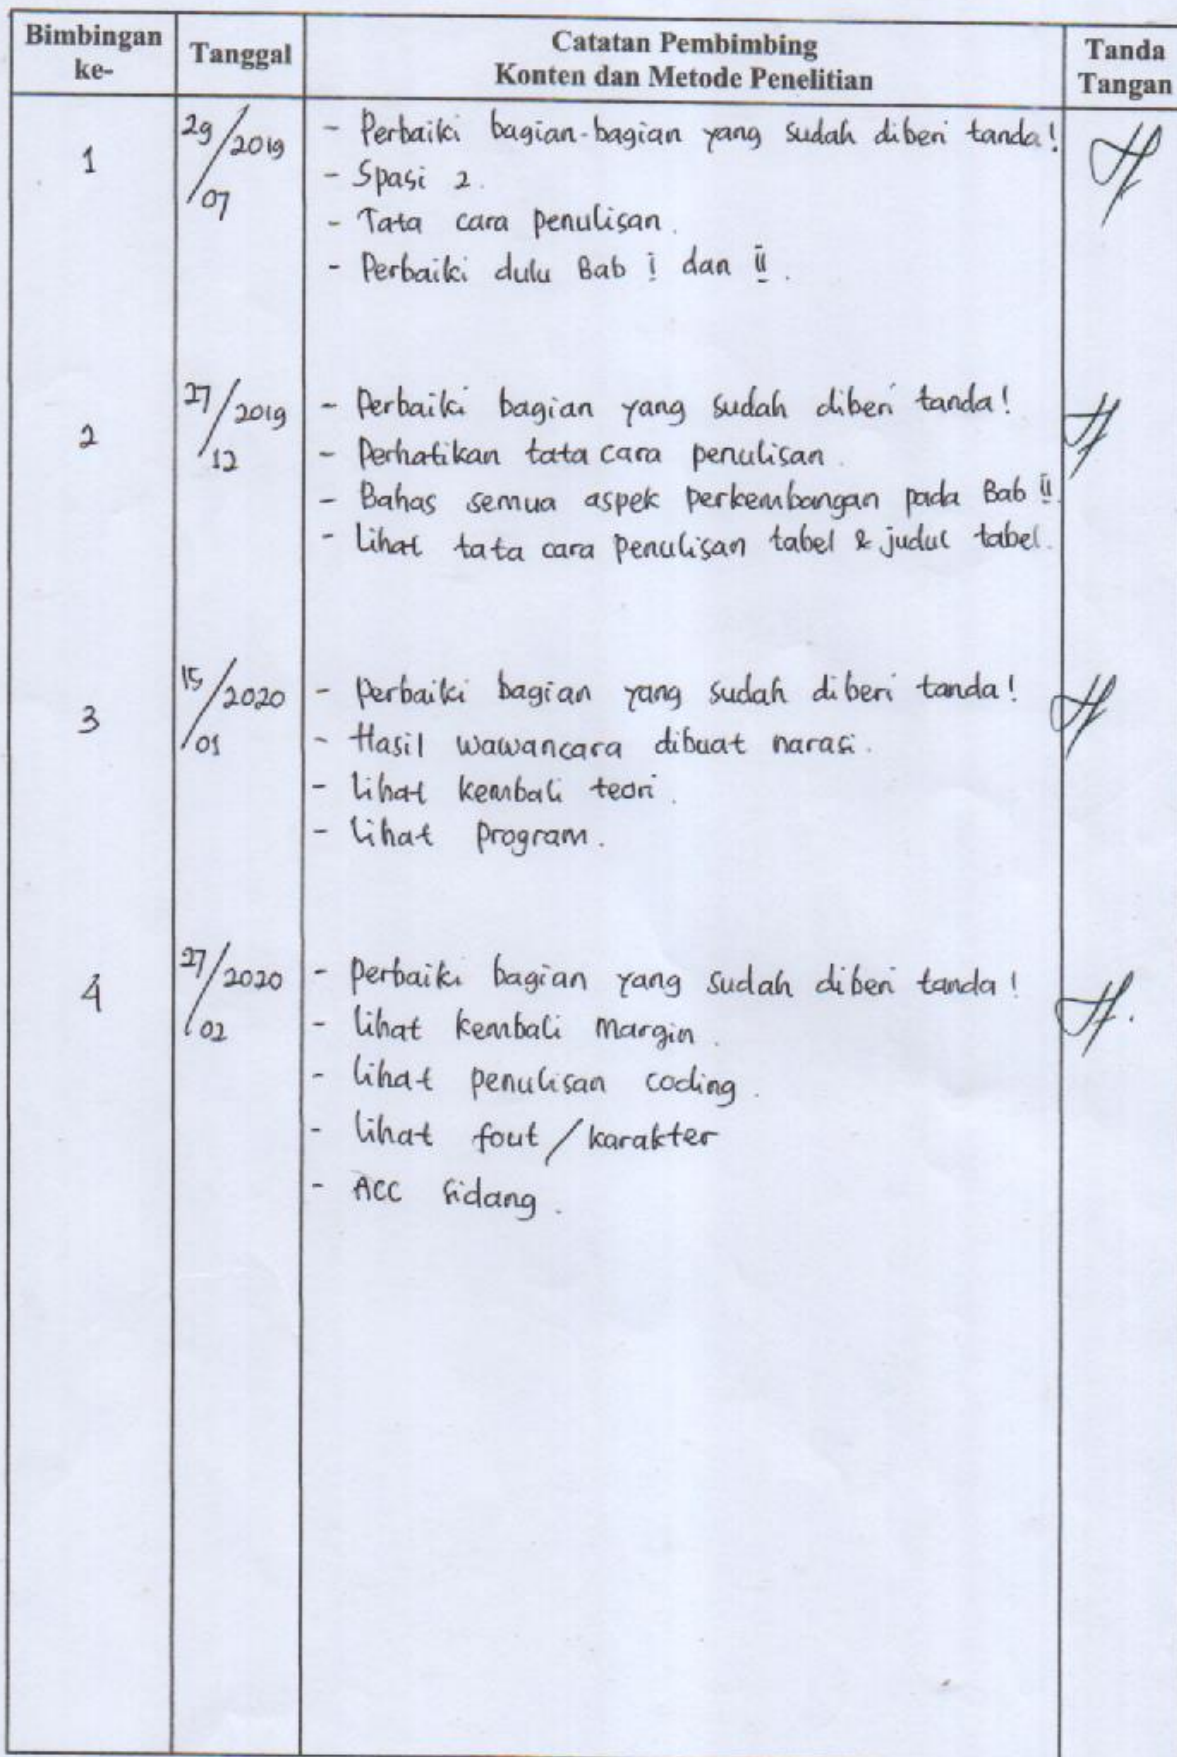 Bimbingan ke-
Tanggal
Catatan Pembimbing
Konten dan Metode Penelitian
Tanda Tangan
1
29/07/2019
- Perbaiki bagian-bagian yang sudah diberi tanda!
- Spasi 2.
- Tata cara penulisan.
- Perbaiki dulu Bab I dan II.
2
27/12/2019
- Perbaiki bagian yang sudah diberi tanda!
- Perhatikan tata cara penulisan.
- Bahas semua aspek perkembangan pada Bab II.
- Lihat tata cara penulisan tabel & judul tabel.
3
15/01/2020
- Perbaiki bagian yang sudah diberi tanda!
- Hasil wawancara dibuat narasi.
- Lihat kembali teori.
- Lihat program.
4
27/02/2020
- Perbaiki bagian yang sudah diberi tanda!
- Lihat kembali Margin.
- Lihat penulisan coding.
- Lihat fout/karakter
- ACC Sidang.